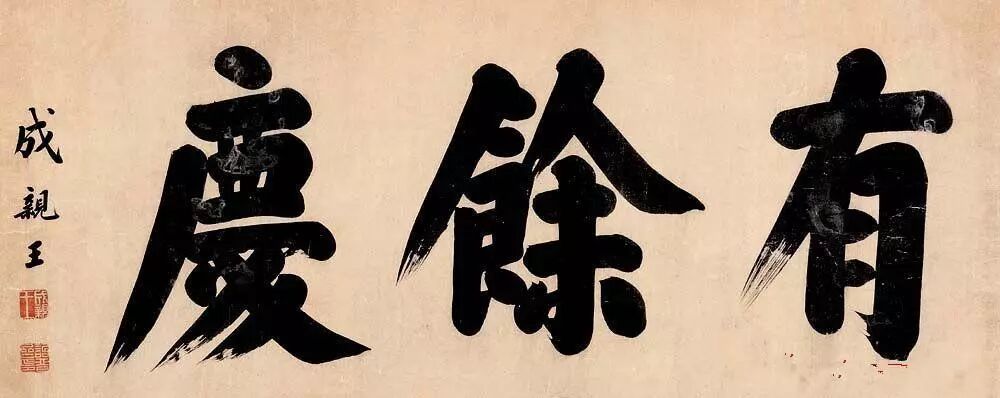 有餘慶
成親王